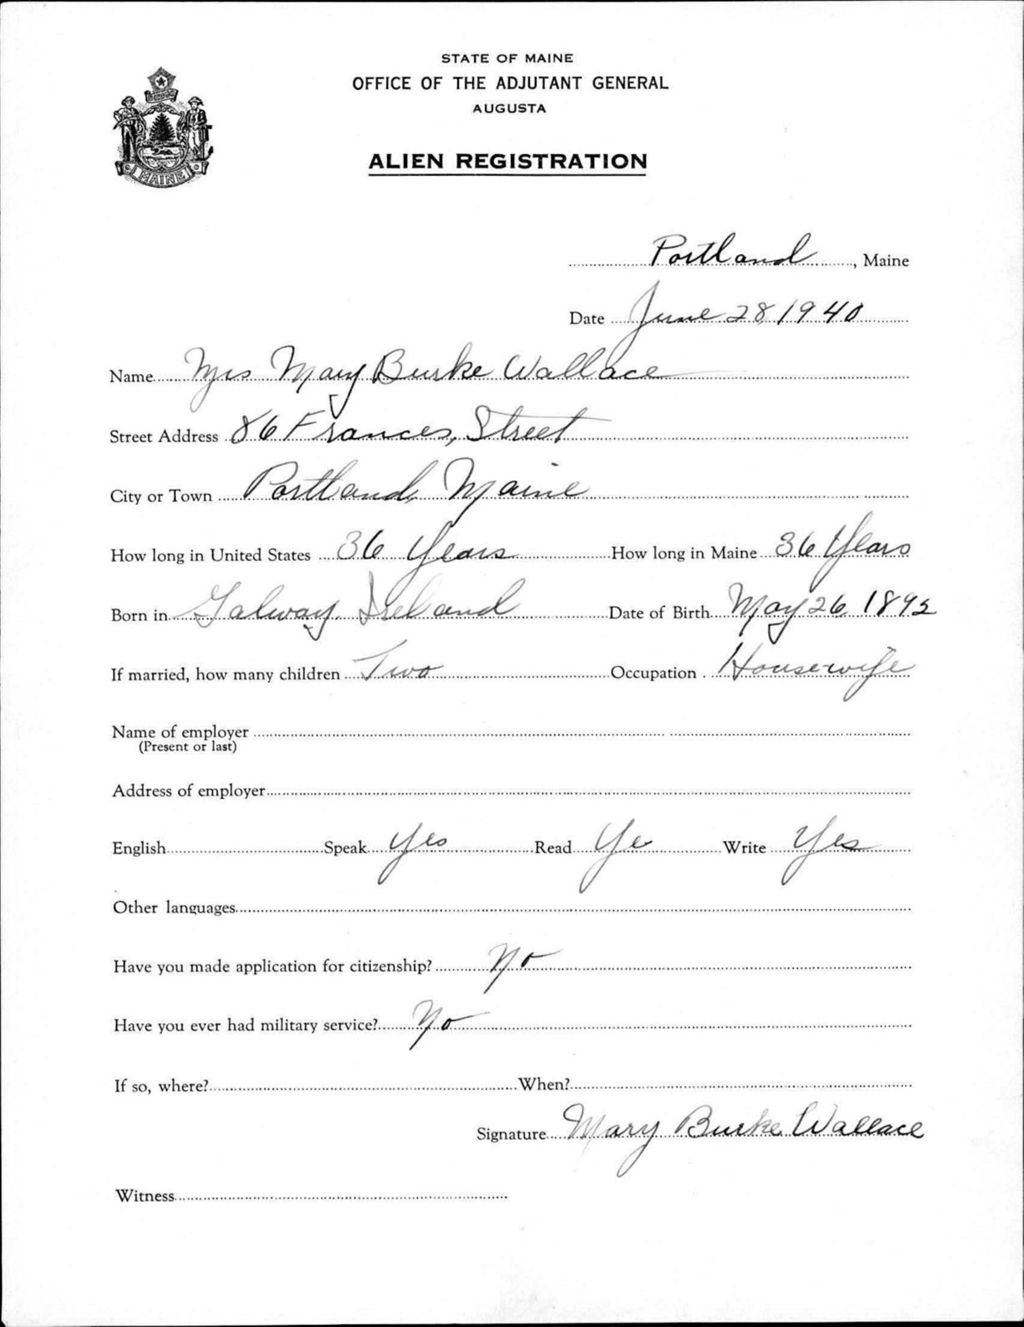 STATE OF MAINE
OFFICE OF THE ADJUTANT GENERAL
AUGUSTA
ALIEN REGISTRATION
MAINE
Portland, Maine
Date June 28 1940
Name Mrs Mary Burke Wallace
Street Address 86 Frances, Street
City or Town Portland, Maine
How long in United States 36 Years How long in Maine 36 Years
Born in Galway, Ireland Date of Birth May 26, 1892
If married, how many children Two Occupation Housewife
Name of employer
(Present or last)
Address of employer
English Speak Yes Read Ye Write Yes
Other languages
Have you made application for citizenship? No
Have you ever had military service? No
If so, where? When?
Signature Mary Burke Wallace
Witness